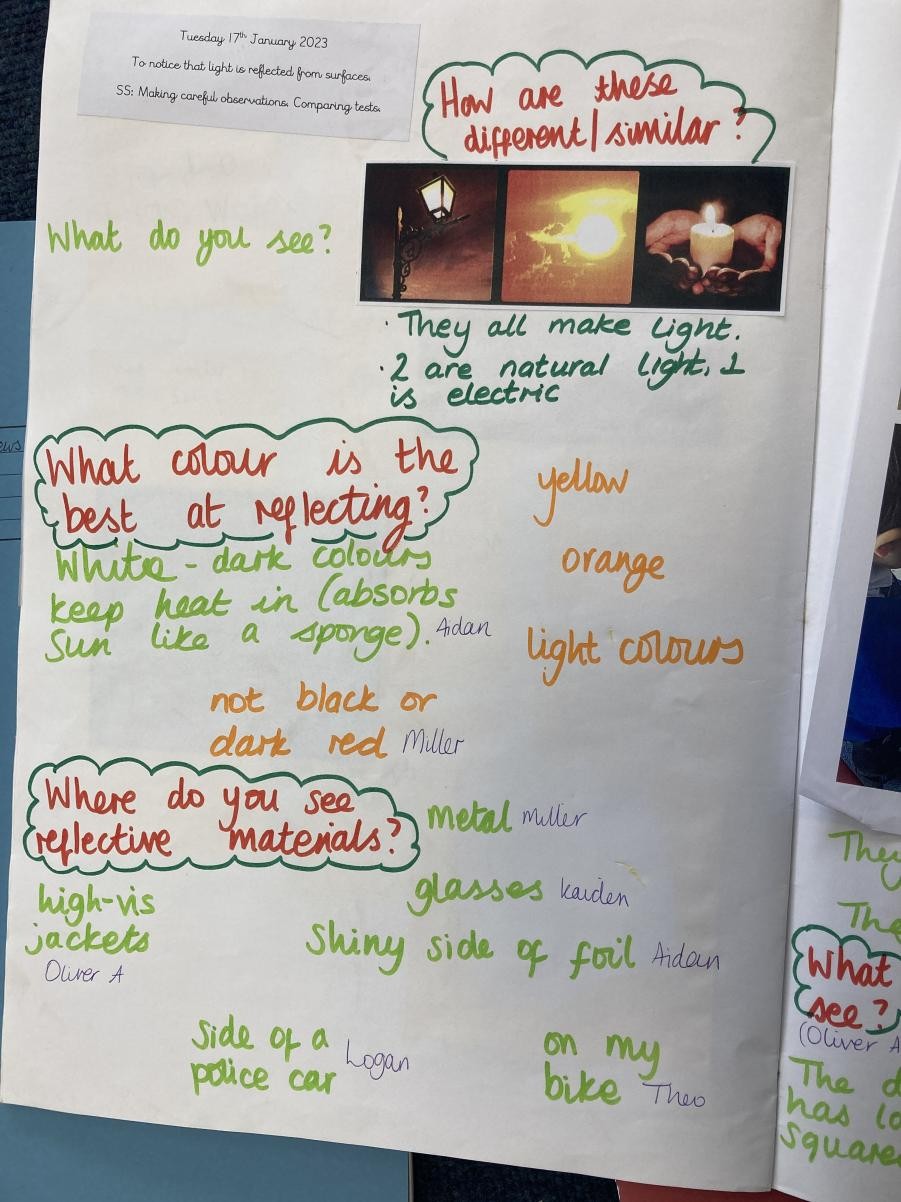 Tuesday 17th January 2023
To notice that light is reflected from surfaces.
SS: Making careful observations. Comparing tests.
How are these
different/similar?
What do you see?
· They all make light.
· 2 are natural light, 1
is electric
What colour is the
best at reflecting?
White - dark colours
keep heat in (absorbs
Sun like a sponge). Aidan
yellow
orange
light colours
not black or
dark red Miller
Where do you see
reflective materials?
metal Miller
glasses Kaiden
high-vis
jackets
Oliver A
Shiny side of foil Aidan
Side of a
police car Logan
on my
bike Theo
They
The
What
see?
(Oliver A
The
has
square